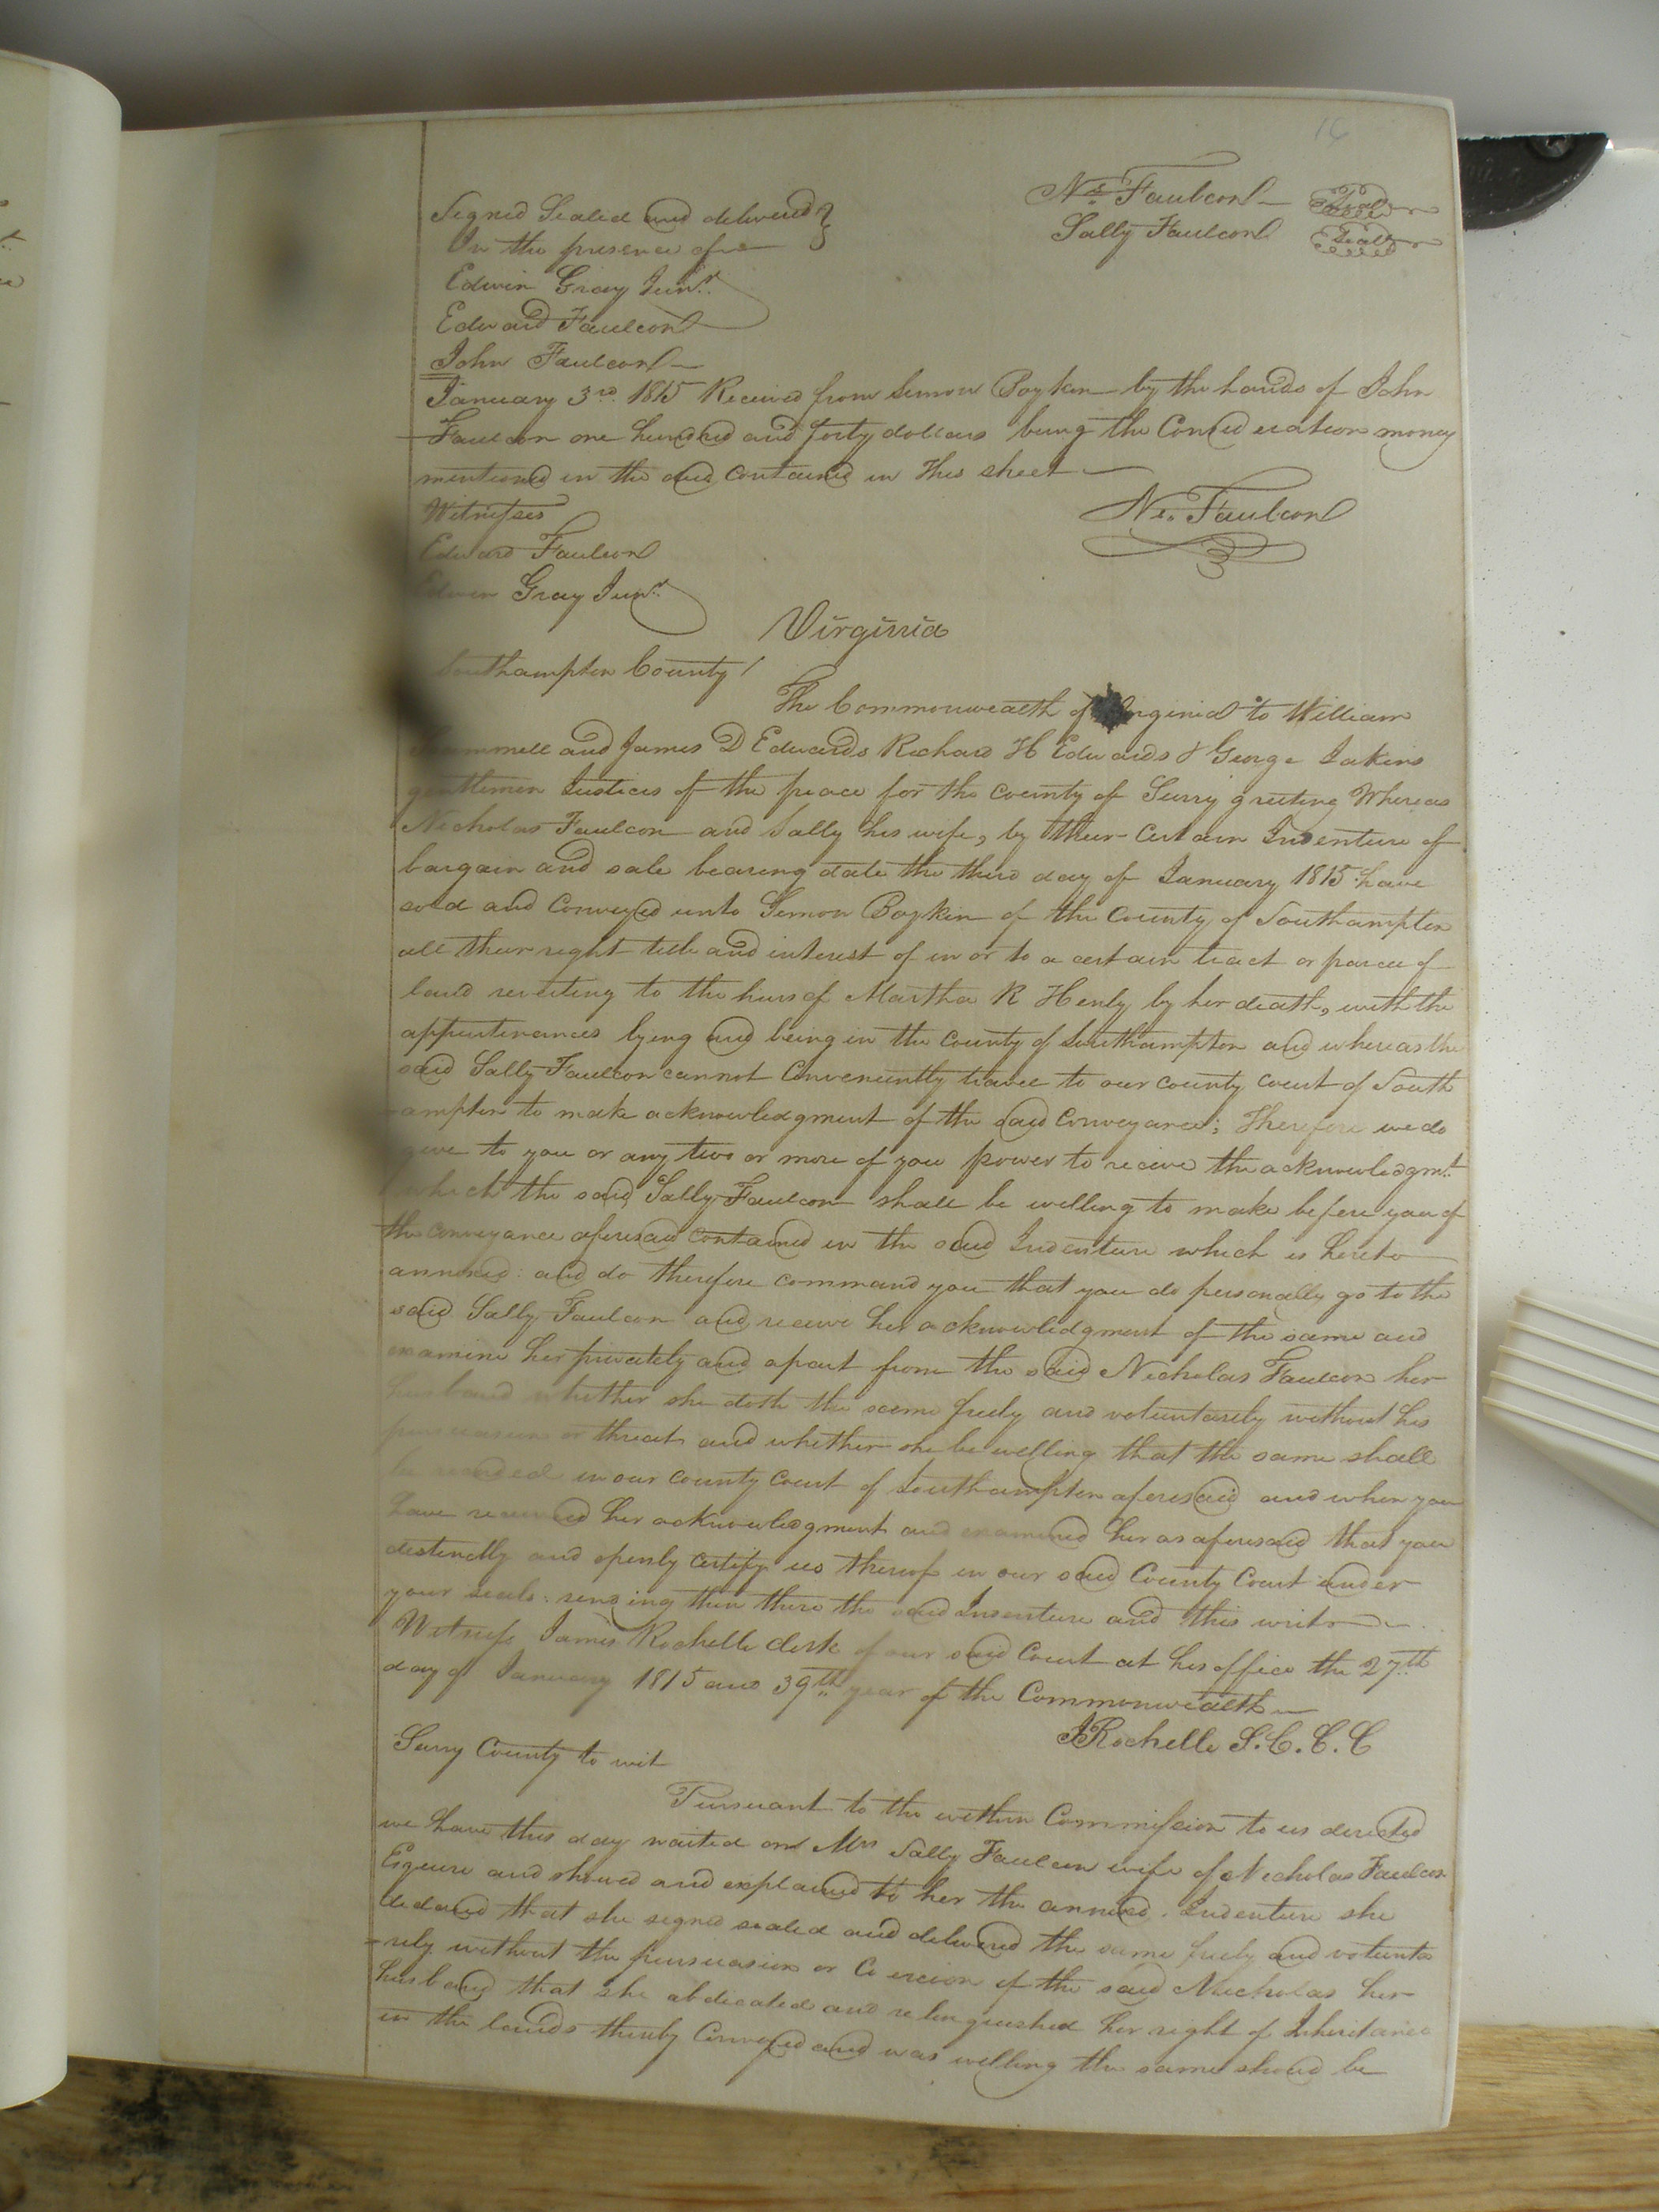 16
Ns. Faulcon Seal
Signed Sealed and delivered }
Sally Faulcon Seal
In the presence of
Edwin Gray Junr.
Edward Faulcon
John Faulcon
January 3rd. 1815 Received from Simon Boykin by the hands of John
Faulcon one hundred and forty dollars being the Consideration money
mentioned in the and contained in this sheet
Witnesses
Ns. Faulcon
Edward Faulcon
Edwin Gray Junr.
Virginia
Southampton County /
The Commonwealth of Virginia to William
and James D Edwards Richard H Edwards & George Jakins
gentlemen Justices of the peace for the county of Surry greeting Whereas
Nicholas Faulcon and Sally his wife, by their Certain Indenture of
bargain and sale bearing date the third day of January 1815 have
sold and Conveyed unto Simon Boykin of the County of Southampton
all their right title and interest of in or to a certain tract or parcel of
land reverting to the heirs of Martha R Henly by her death, with the
appurtenances lying and being in the County of Southampton and whereas the
said Sally Faulcon cannot Conveniently travel to our county court of South
-ampton to make acknowledgment of the said Conveyance; Therefore we do
give to you or any two or more of you power to receive the acknowledgmt.
which the said Sally Faulcon shall be willing to make before you of
the conveyance aforesaid contained in the said Indenture which is hereto
annexed: and do therefore command you that you do personally go to the
said Sally Faulcon and receive her acknowledgment of the same and
examine her privately and apart from the said Nicholas Faulcon her
husband whether she doth the same freely and voluntarily without his
persuasions or threats and whether she be willing that the same shall
be recorded in our county court of Southampton aforesaid and when you
have received her acknowledgment and examined her as aforesaid that you
distinctly and openly certify us thereof in our said County Court under
your seals: sending then there the said Indenture and this writ
Witness James Rochelle clerk of our said Court at his office the 27th
day of January 1815 and 39th year of the Commonwealth
JRochelle S.C.C.C
Surry County to wit
Pursuant to the within Commission to us directed
we have this day waited on Mrs Sally Faulcon wife of Nicholas Faulcon
Esquire and shewed and explained to her the annexed Indenture she
declared that she signed sealed and delivered the same freely and volunta
-rily without the persuasion or Coercion of the said Nicholas her
husband that she abdicated and relinquished her right of Inheritance
in the lands thereby Conveyed and was willing the same should be